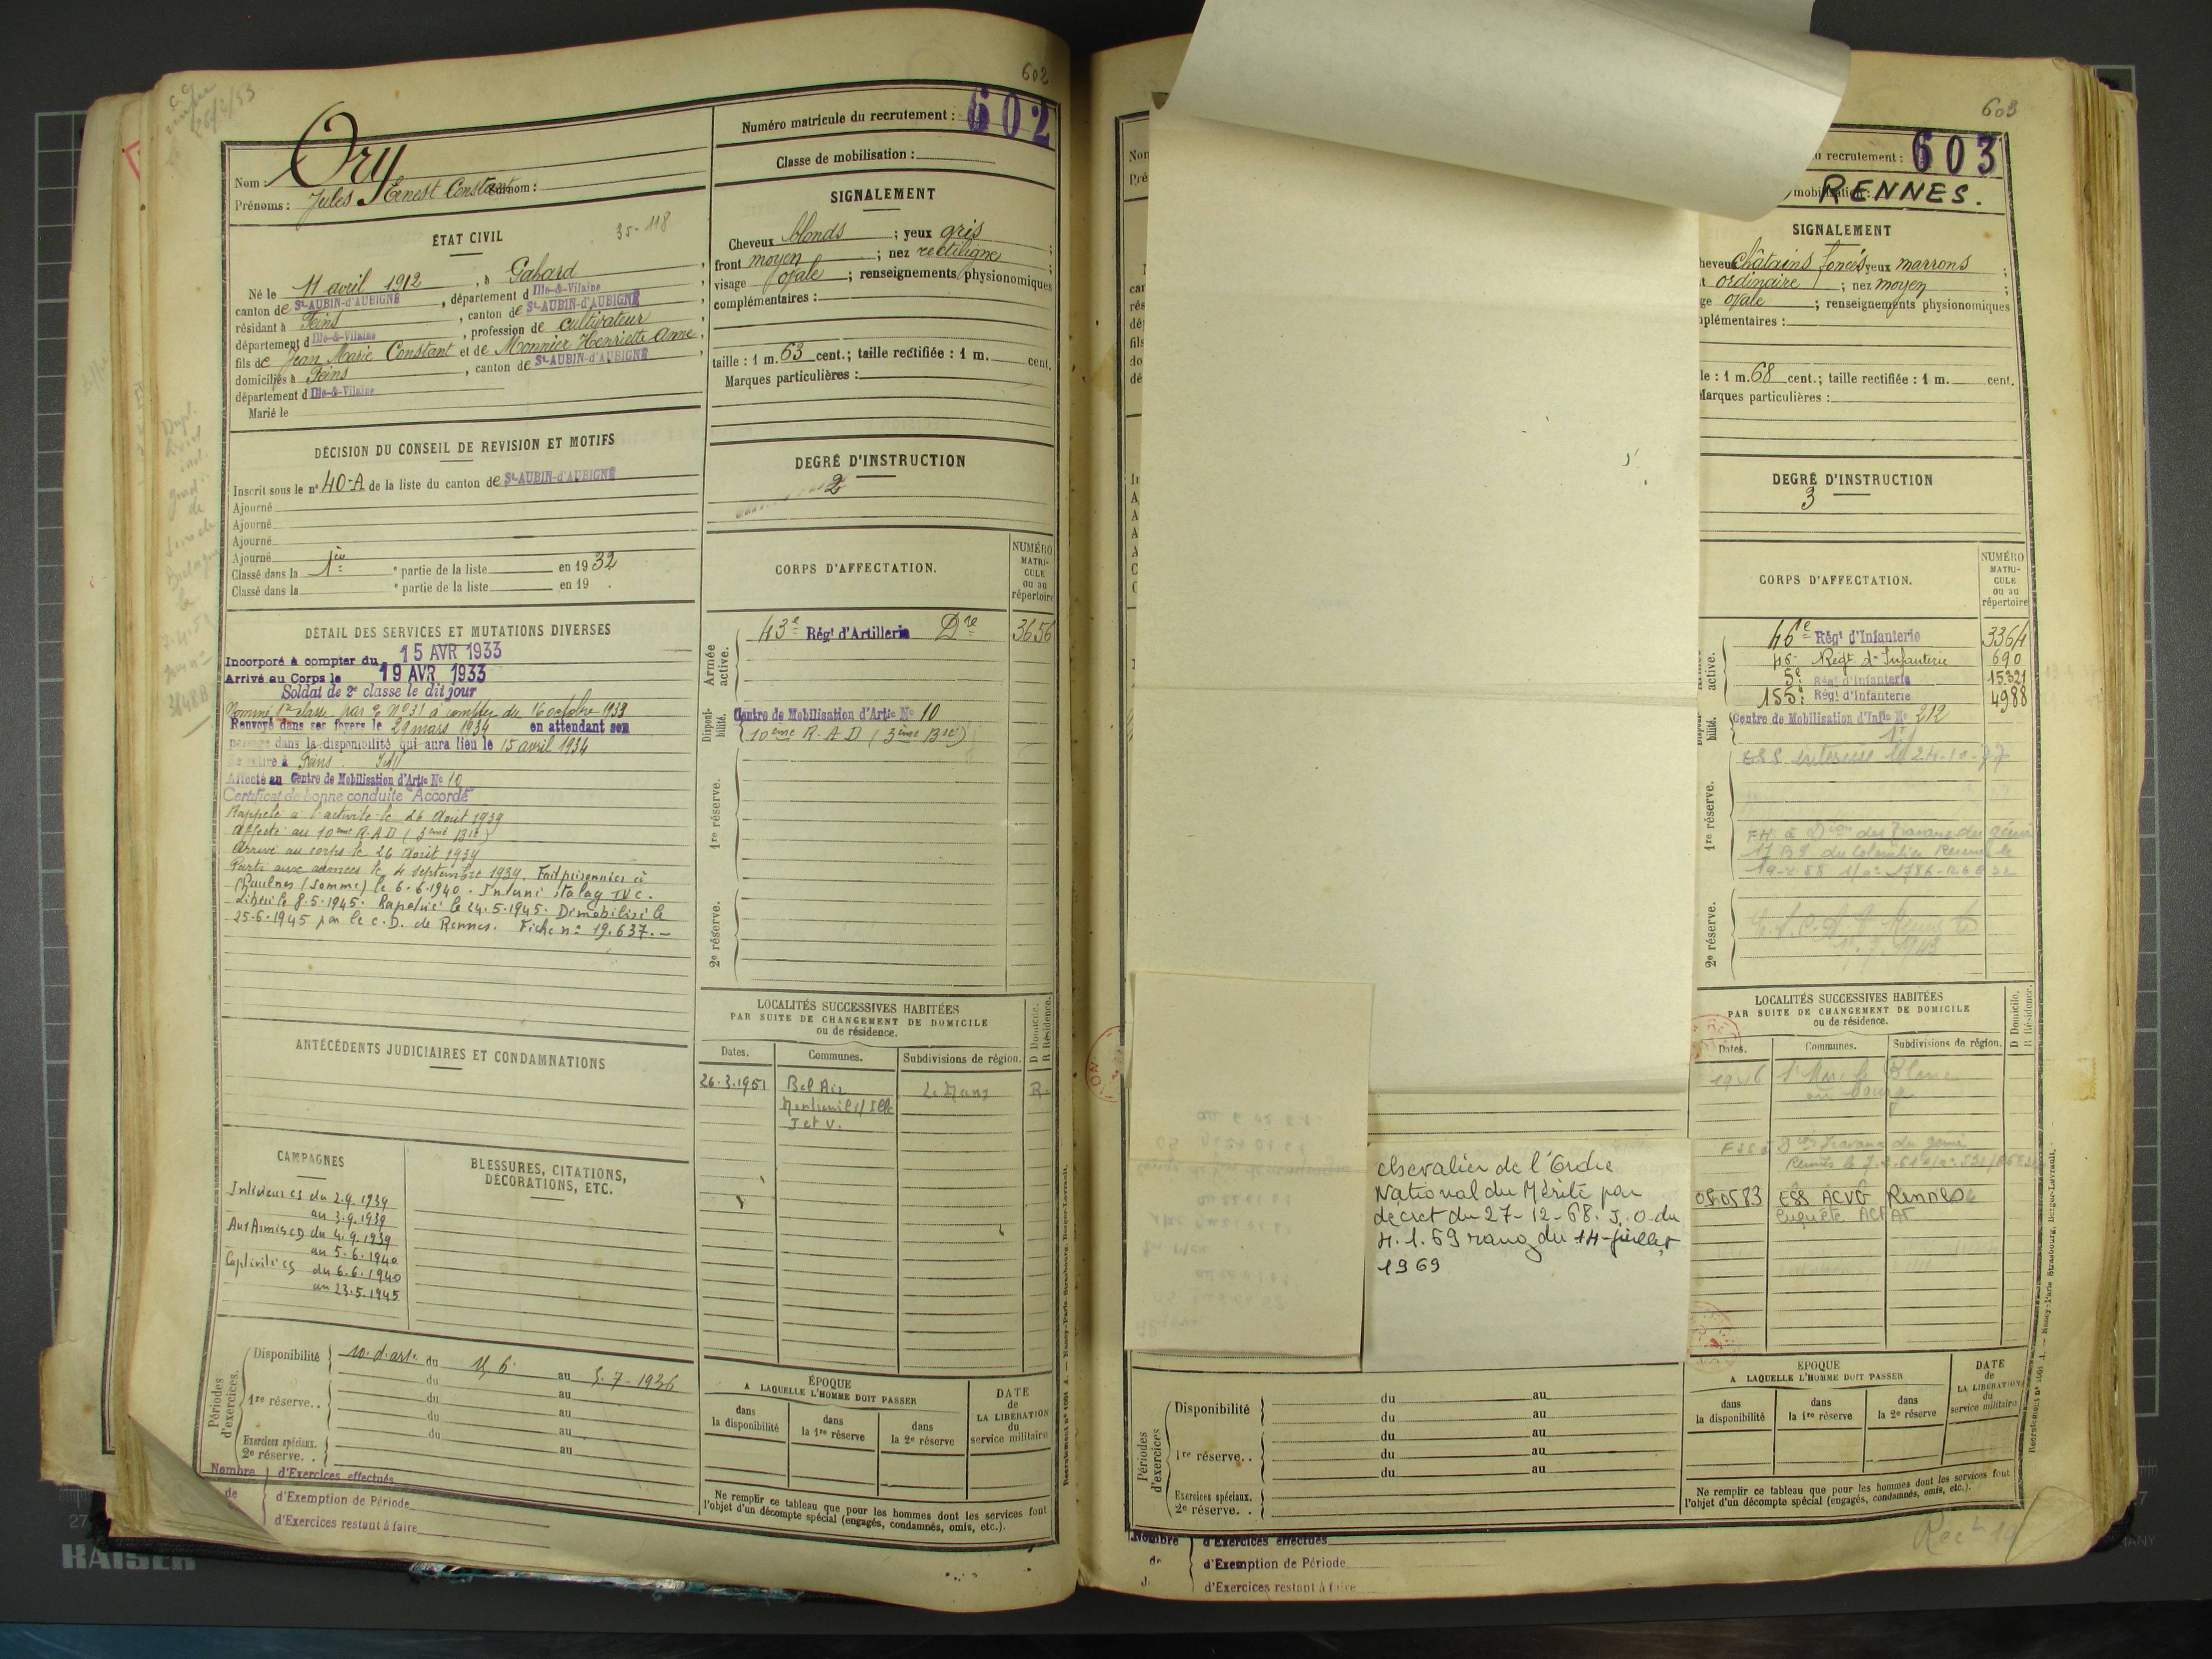 602
Numéro matricule du recrutement : 602
Nom : Ory
Prénoms : Jules Ernest Constant Surnom :
Classe de mobilisation :
ÉTAT CIVIL
35-118
Né le 11 avril 1912, à Gahard
canton de St-AUBIN-d'AUBIGNÉ, département d Ille-&-Vilaine
résidant à Feins, canton de St-AUBIN-d'AUBIGNÉ
département d Ille-&-Vilaine, profession de cultivateur
fils de Jean Marie Constant et de Monnier Henriette Anne,
domiciliés à Feins, canton de St-AUBIN-d'AUBIGNÉ
département d Ille-&-Vilaine
Marié le
DÉCISION DU CONSEIL DE REVISION ET MOTIFS
Inscrit sous le n° 40-A de la liste du canton de St-AUBIN-d'AUBIGNÉ
Ajourné
Ajourné
Ajourné
Ajourné
Classé dans la 1ère partie de la liste en 1932
Classé dans la e partie de la liste en 19 .
DÉTAIL DES SERVICES ET MUTATIONS DIVERSES
Incorporé à compter du 15 AVR 1933
Arrivé au Corps le 19 AVR 1933
Soldat de 2e classe le dit jour
Nommé 1ère classe par o. N° 31 à compter du 16 octobre 1933
Renvoyé dans ses foyers le 29 mars 1934 en attendant son
passage dans la disponibilité qui aura lieu le 15 avril 1934
Se retire à Feins. I&V
Affecté au Centre de Mobilisation d'Artie No 10
Certificat de bonne conduite "Accordé"
Rappelé à l'activité le 26 Août 1939
Affecté au 10ème R.A.D (3ème Bie)
Arrivé au corps le 26 Août 1939
Parti aux armées le 4 septembre 1939. Fait prisonnier à
Chaulnes (Somme) le 6.6.1940. Interné stalag IV C.
Libéré le 8.5.1945. Rapatrié le 24.5.1945. Démobilisé le
25-6-1945 par le C.D. de Rennes. Fiche n° 19.637.-
ANTÉCÉDENTS JUDICIAIRES ET CONDAMNATIONS
CAMPAGNES
Intérieur CS du 2.9.1939
au 3.9.1939
Aux Armées CD du 4.9.1939
au 5.6.1940
Captivité CS du 6.6.1940
au 23.5.1945
BLESSURES, CITATIONS,
DÉCORATIONS, ETC.
Périodes d'exercices.
Disponibilité 10. d'art. du 15 6. au 5-7-1936
du au
1re réserve. . du au
du au
du au
Exercices spéciaux.
2e réserve. . au
Nombre d'Exercices effectués
de d'Exemption de Période
d'Exercices restant à faire
SIGNALEMENT
Cheveux blonds ; yeux gris ;
front moyen ; nez rectiligne ;
visage ovale ; renseignements physionomiques
complémentaires :
taille : 1 m. 63 cent.; taille rectifiée : 1 m. cent.
Marques particulières :
DEGRÉ D'INSTRUCTION
2
CORPS D'AFFECTATION.
NUMÉRO
MATRI-
CULE
ou au
répertoire
Armée active.
43e Régt d'Artillerie Dre 3656
Disponibilité.
Centre de Mobilisation d'Artie No 10
10ème R.A.D (3ème Bie)
1re réserve.
2e réserve.
LOCALITÉS SUCCESSIVES HABITÉES
PAR SUITE DE CHANGEMENT DE DOMICILE
ou de résidence.
D Domicile.
R Résidence.
Dates. Communes. Subdivisions de région.
26.3.1951 Bel Air Le Mans R.
Montreuil s/ Ille
I et V.
ÉPOQUE
A LAQUELLE L'HOMME DOIT PASSER
DATE
de
LA LIBÉRATION
du
service militaire
dans la disponibilité
dans la 1re réserve
dans la 2e réserve
Ne remplir ce tableau que pour les hommes dont les services font
l'objet d'un décompte spécial (engagés, condamnés, omis, etc.).
603
recrutement : 603
mobilisation : RENNES.
SIGNALEMENT
heveux Châtains foncés yeux marrons ;
ordinaire ; nez moyen ;
ge ovale ; renseignements physionomiques
plémentaires :
le : 1 m. 68 cent.; taille rectifiée : 1 m. cent.
Marques particulières :
DEGRÉ D'INSTRUCTION
3
CORPS D'AFFECTATION.
NUMÉRO
MATRI-
CULE
ou au
répertoire
active.
46e Régt d'Infanterie 3364
46e Régt d'Infanterie 690
5e Régt d'Infanterie 15321
155e Régt d'Infanterie 4988
Centre de Mobilisation d'Infie No 212
1re réserve.
2e réserve.
LOCALITÉS SUCCESSIVES HABITÉES
PAR SUITE DE CHANGEMENT DE DOMICILE
ou de résidence.
D Domicile.
R Résidence.
Dates. Communes. Subdivisions de région.
05.05.83 ESS ACVG Rennes
Enquête
chevalier de l'Ordre
National du Mérite par
décret du 27-12-68. J.O du
4.1.69 rang du 14-juillet
1969
Périodes d'exercices
Disponibilité du au
du au
1re réserve. . du au
du au
du au
Exercices spéciaux.
2e réserve. .
ÉPOQUE
A LAQUELLE L'HOMME DOIT PASSER
DATE
de
LA LIBÉRATION
du
service militaire
dans la disponibilité
dans la 1re réserve
dans la 2e réserve
Ne remplir ce tableau que pour les hommes dont les services font
l'objet d'un décompte spécial (engagés, condamnés, omis, etc.).
Nombre d'Exercices effectués
de d'Exemption de Période
d'Exercices restant à faire
KAISER